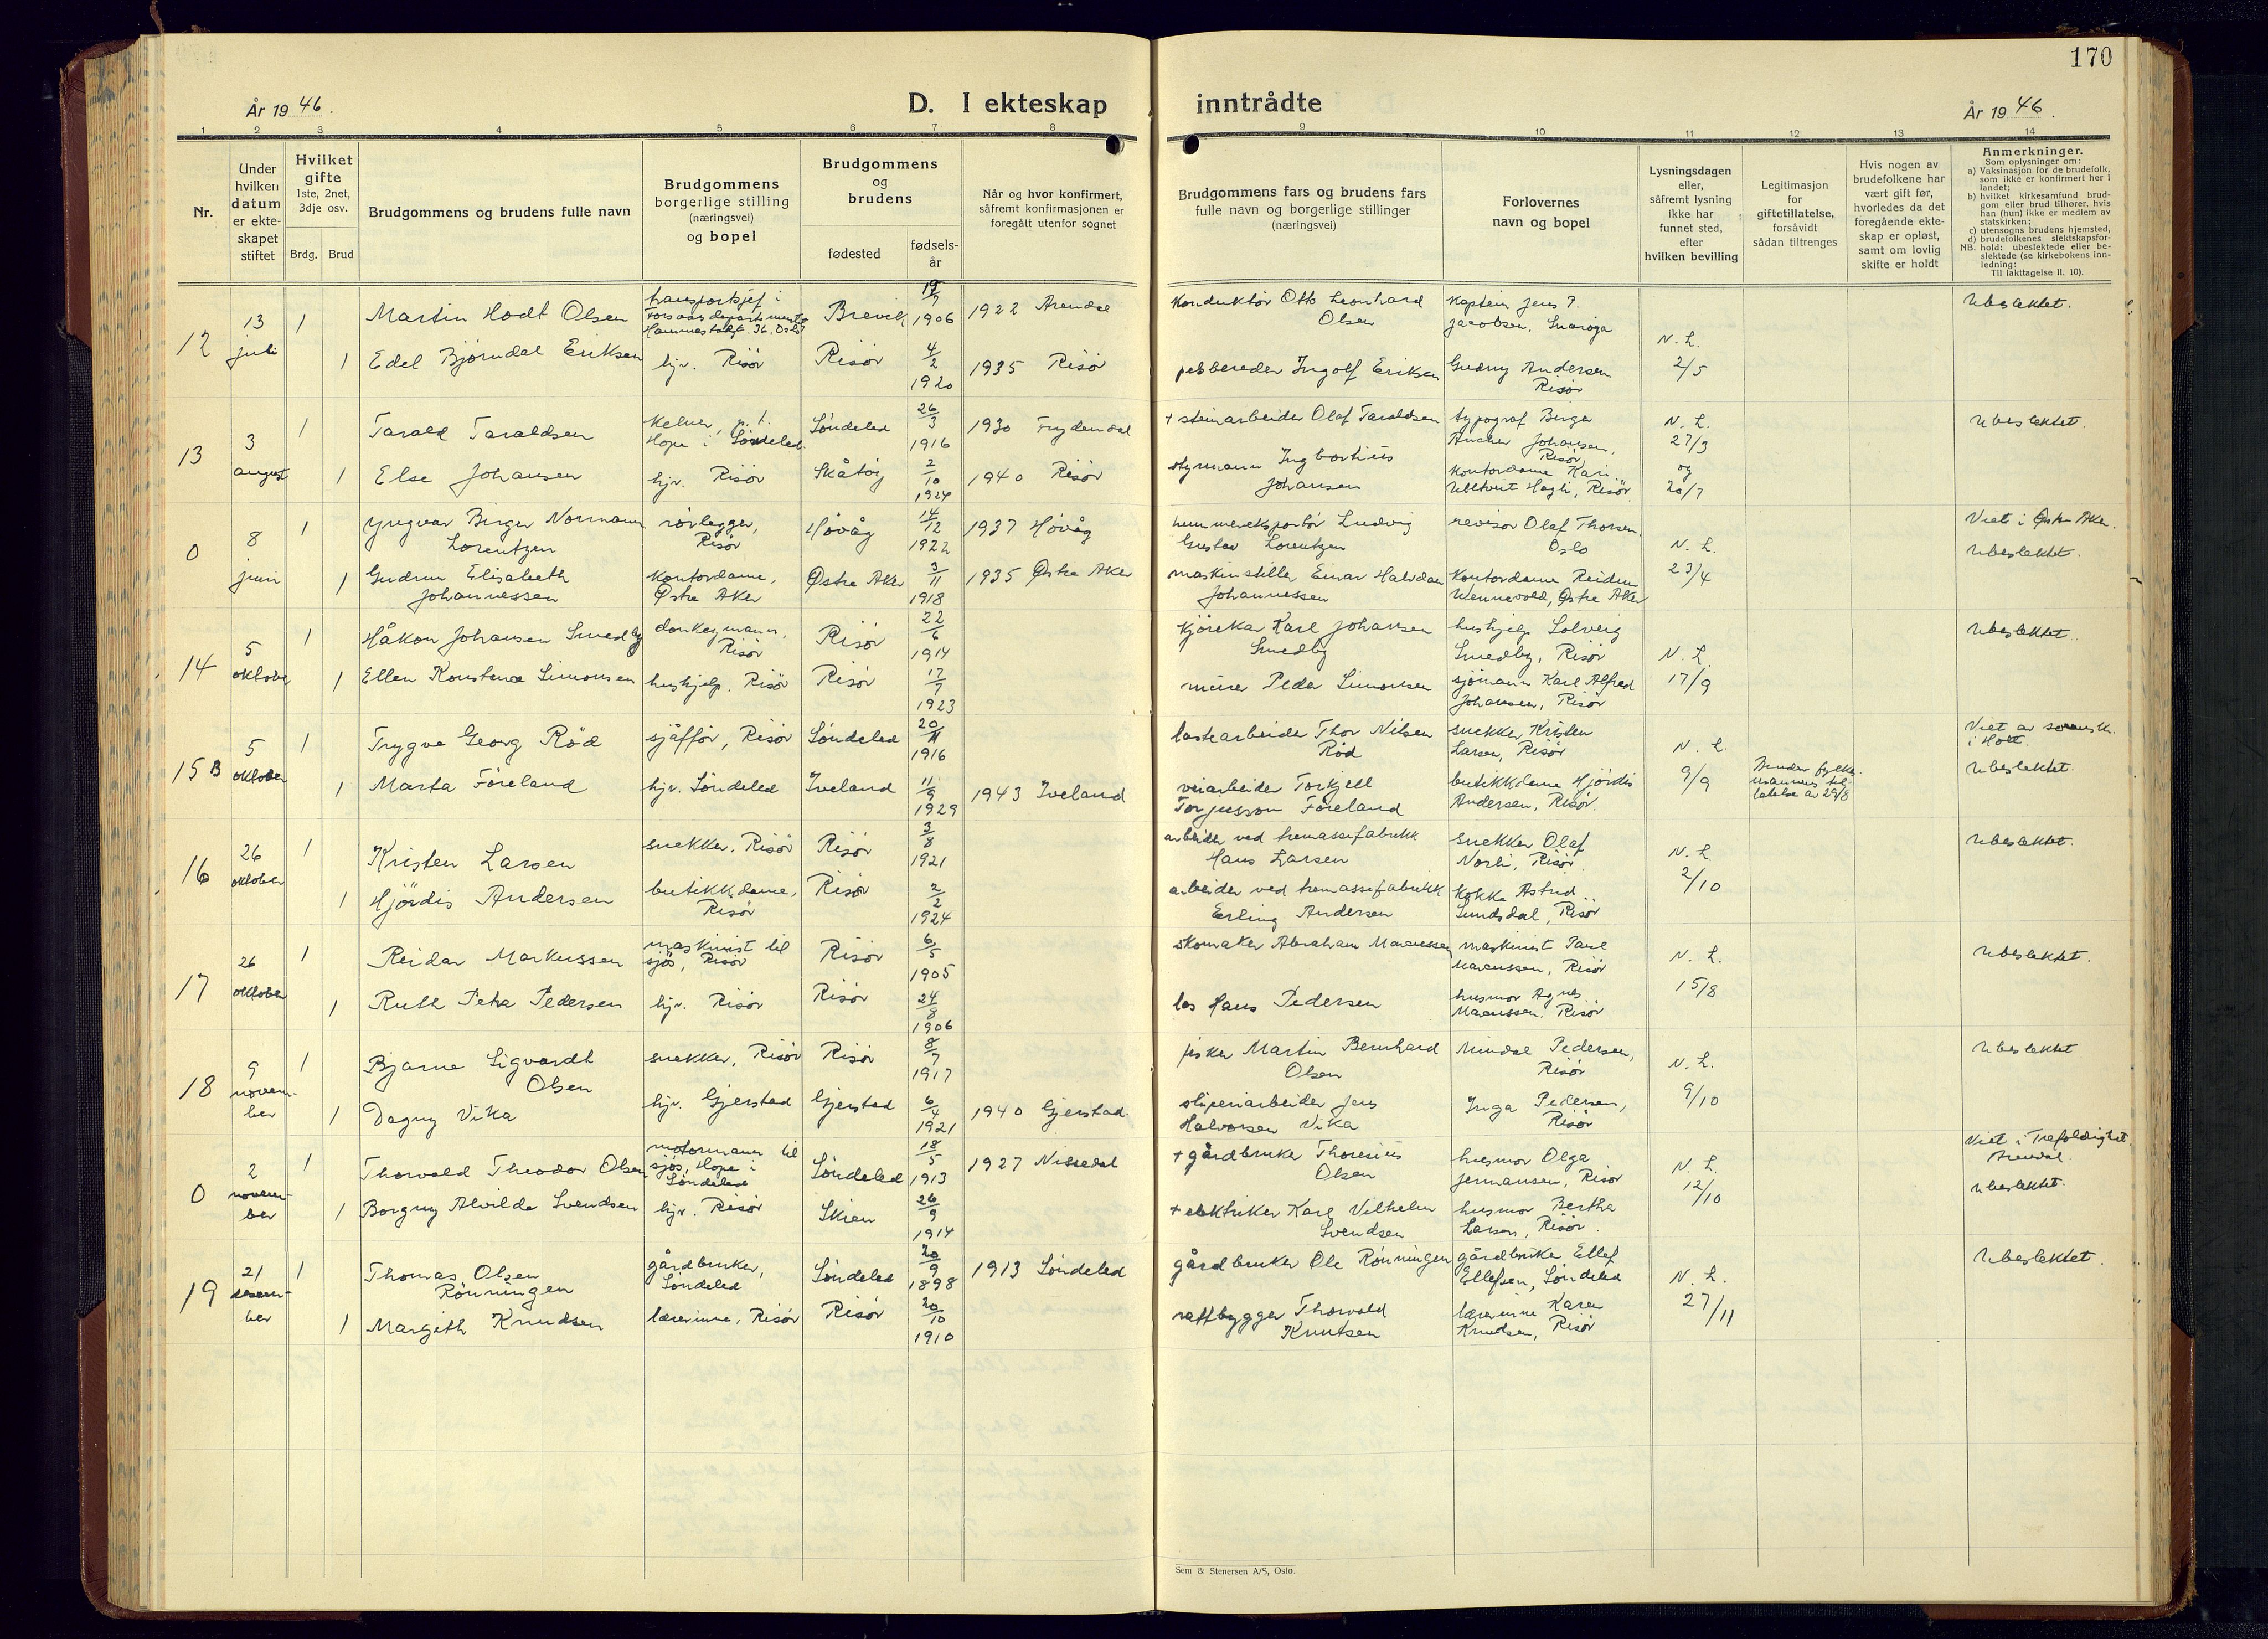 170
År 1946.
D. I ekteskap inntrådte
År 1946.
1 2 3 4 5 6 7 8 9 10 11 12 13 14
Nr.
Under
hvilken
datum
er ekte-
skapet
stiftet
Hvilket
gifte
1ste, 2net,
3dje osv.
Brdg. Brud
Brudgommens og brudens fulle navn
Brudgommens
borgerlige stilling
(næringsvei)
og bopel
Brudgommens
og
brudens
fødested
fødsels-
år
Når og hvor konfirmert,
såfremt konfirmasjonen er
foregått utenfor sognet
Brudgommens fars og brudens fars
fulle navn og borgerlige stillinger
(næringsvei)
Forlovernes
navn og bopel
Lysningsdagen
eller,
såfremt lysning
ikke har
funnet sted,
efter
hvilken bevilling
Legitimasjon
for
giftetillatelse,
forsåvidt
sådan tiltrenges
Hvis nogen av
brudefolkene har
vært gift før,
hvorledes da det
foregående ekte-
skap er opløst,
samt om lovlig
skifte er holdt
Anmerkninger.
Som oplysninger om:
a) Vaksinasjon for de brudefolk,
som ikke er konfirmert her i
landet;
b) hvilket kirkesamfund brud-
gom eller brud tilhører, hvis
han (hun) ikke er medlem av
statskirken;
c) utensogns brudens hjemsted,
d) brudefolkenes slektskapsfor-
NB. hold: ubeslektede eller be-
slektede (se kirkebokens inn-
ledning:
Til iakttagelse II. 10).
12
13
juli
1
Martin Hodt Olsen
transportsjef i
Forsvarsdepartmentet
Hammerstadgt. 36, Oslo
Brevik
19/7
1906
1922 Arendal
Konduktør Otto Leonhard
Olsen
Kaptein Jens P.
Jacobsen, Snarøya
N. L.
2/5
Ubeslektet.
1
Edel Bjørndal Eriksen
hjv. Risør
Risør
4/2
1920
1935 Risør
pelsbereder Ingolf Eriksen
Gudny Andersen
Risør
13
3
august
1
Tarald Taraldsen
Kelner, p.t.
Hope i Søndeled
Søndeled
26/3
1916
1930 Frydendal
+ steinarbeider Olaf Taraldsen
typograf Birger
Ancher Johansen,
Risør,
N. L.
27/3
og
20/7
Ubeslektet.
1
Else Johansen
hjv. Risør
Skåtøy
2/10
1924
1940 Risør
styrmann Ingbortius
Johansen
kontordame Kari
Ulltveit Hagli, Risør
0
8
juni
1
Yngvar Birger Normann
Lorentzen
rørlegger,
Risør
Høvåg
14/12
1922
1937 Høvåg
hummereksportør Ludvig
Gustav Lorentzen
revisor Olaf Thorsen.
Oslo
N. L.
23/4
Viet i Østre Aker.
Ubeslektet.
1
Gudrun Elisabeth
Johannessen
Kontordame,
Østre Aker
Østre Aker
3/11
1918
1935 Østre Aker
maskinstiller Einar Halvdan
Johannessen
Kontordame Reidun
Wennevold, Østre Aker
14
5
oktober
1
Håkon Johansen Smedby
donkeymann,
Risør
Risør
22/6
1914
Kjørekar Karl Johansen
Smedby
hushjelp Solveig
Smedby, Risør
N. L.
17/9
Ubeslektet.
1
Ellen Konstance Simonsen
hushjelp. Risør
Risør
17/7
1923
murer Peder Simonsen
sjømann Karl Alfred
Johansen, Risør
15 B
5
oktober
1
Trygve Georg Rød
sjåffør, Risør
Søndeled
20/11
1916
lastearbeider Thor Nilsen
Rød
snekker Kristen
Larsen, Risør
N. L.
9/9
Bruden fylkes-
mannens til-
latelse av 29/8
Viet av sorenskr.
i Holt.
Ubeslektet.
1
Marta Føreland
hjv. Søndeled
Iveland
11/9
1929
1943 Iveland
veiarbeider Torkjell
Torjusson Føreland
butikkdame Hjørdis
Andersen, Risør.
16
26
oktober
1
Kristen Larsen
snekker. Risør
Risør
3/8
1921
arbeider ved tremassefabrikk
Hans Larsen
snekker Olaf
Norli, Risør.
N. L.
2/10
Ubeslektet.
1
Hjørdis Andersen
butikkdame,
Risør
Risør
2/2
1924
arbeider ved tremassefabrikk
Erling Andersen
Kokke Astrid
Sundsdal, Risør
17
26
oktober
1
Reidar Markussen
maskinist til
sjøs, Risør
Risør
6/5
1905
skomaker Abraham Marcussen
maskinist Paul
Marcussen, Risør
N. L.
15/8
Ubeslektet.
1
Ruth Petra Pedersen
hjv. Risør
Risør
24/8
1906
los Hans Pedersen
husmor Agnes
Marcussen. Risør
18
9
novem-
ber
1
Bjarne Sigvardt
Olsen
snekker, Risør
Risør
8/7
1917
fisker Martin Bernhard
Olsen
Mindal Pedersen,
Risør
N. L.
9/10
Ubeslektet
1
Dagny Vika
hjv. Gjerstad
Gjerstad
6/4
1921
1940 Gjerstad.
sliperiarbeider Jens
Halvorsen Vika
Inga Pedersen,
Risør
0
2
novem-
ber
1
Thorvald Theodor Olsen
motormann til
sjøs, Hope i
Søndeled
Søndeled
18/5
1913
1927 Nissedal
+ gårdbruker Thorenius
Olsen
husmor Olga
Jermansen, Risør
N. L.
12/10
Viet i Trefoldighet,
Arendal.
Ubeslektet.
1
Borgny Alvilde Svendsen
hjv. Risør
Skien
26/9
1914
+ elektriker Karl Vilhelm
Svendsen
husmor Bertha
Larsen, Risør.
19
21
desem-
ber
1
Thomas Olsen
Rønningen
gårdbruker,
Søndeled
Søndeled
20/9
1898
1913 Søndeled
gårdbruker Ole Rønningen
gårdbruker Ellef
Ellefsen, Søndeled
N. L.
27/11
Ubeslektet.
1
Margith Knudsen
lærerinne, Risør
Risør
20/10
1910
båtbygger Thorvald
Knutsen
lærerinne Karen
Knudsen, Risør
Sem & Stenersen A/S, Oslo.